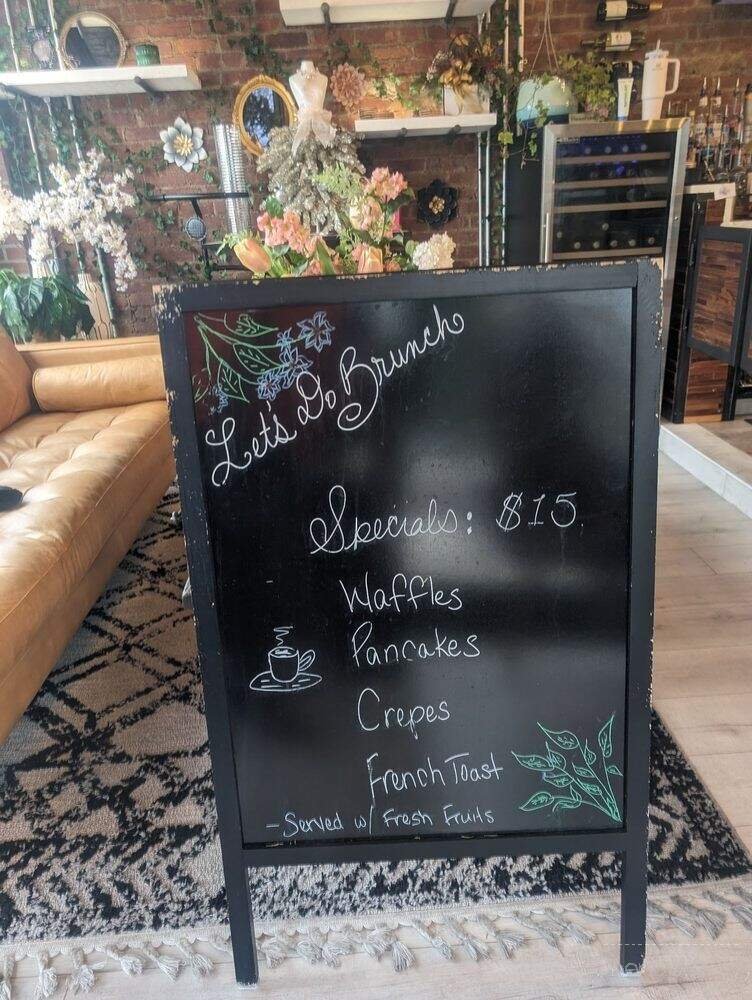 Let's Do Brunch
Specials: $15
Waffles
Pancakes
Crepes
French Toast
- Served w/ Fresh Fruits